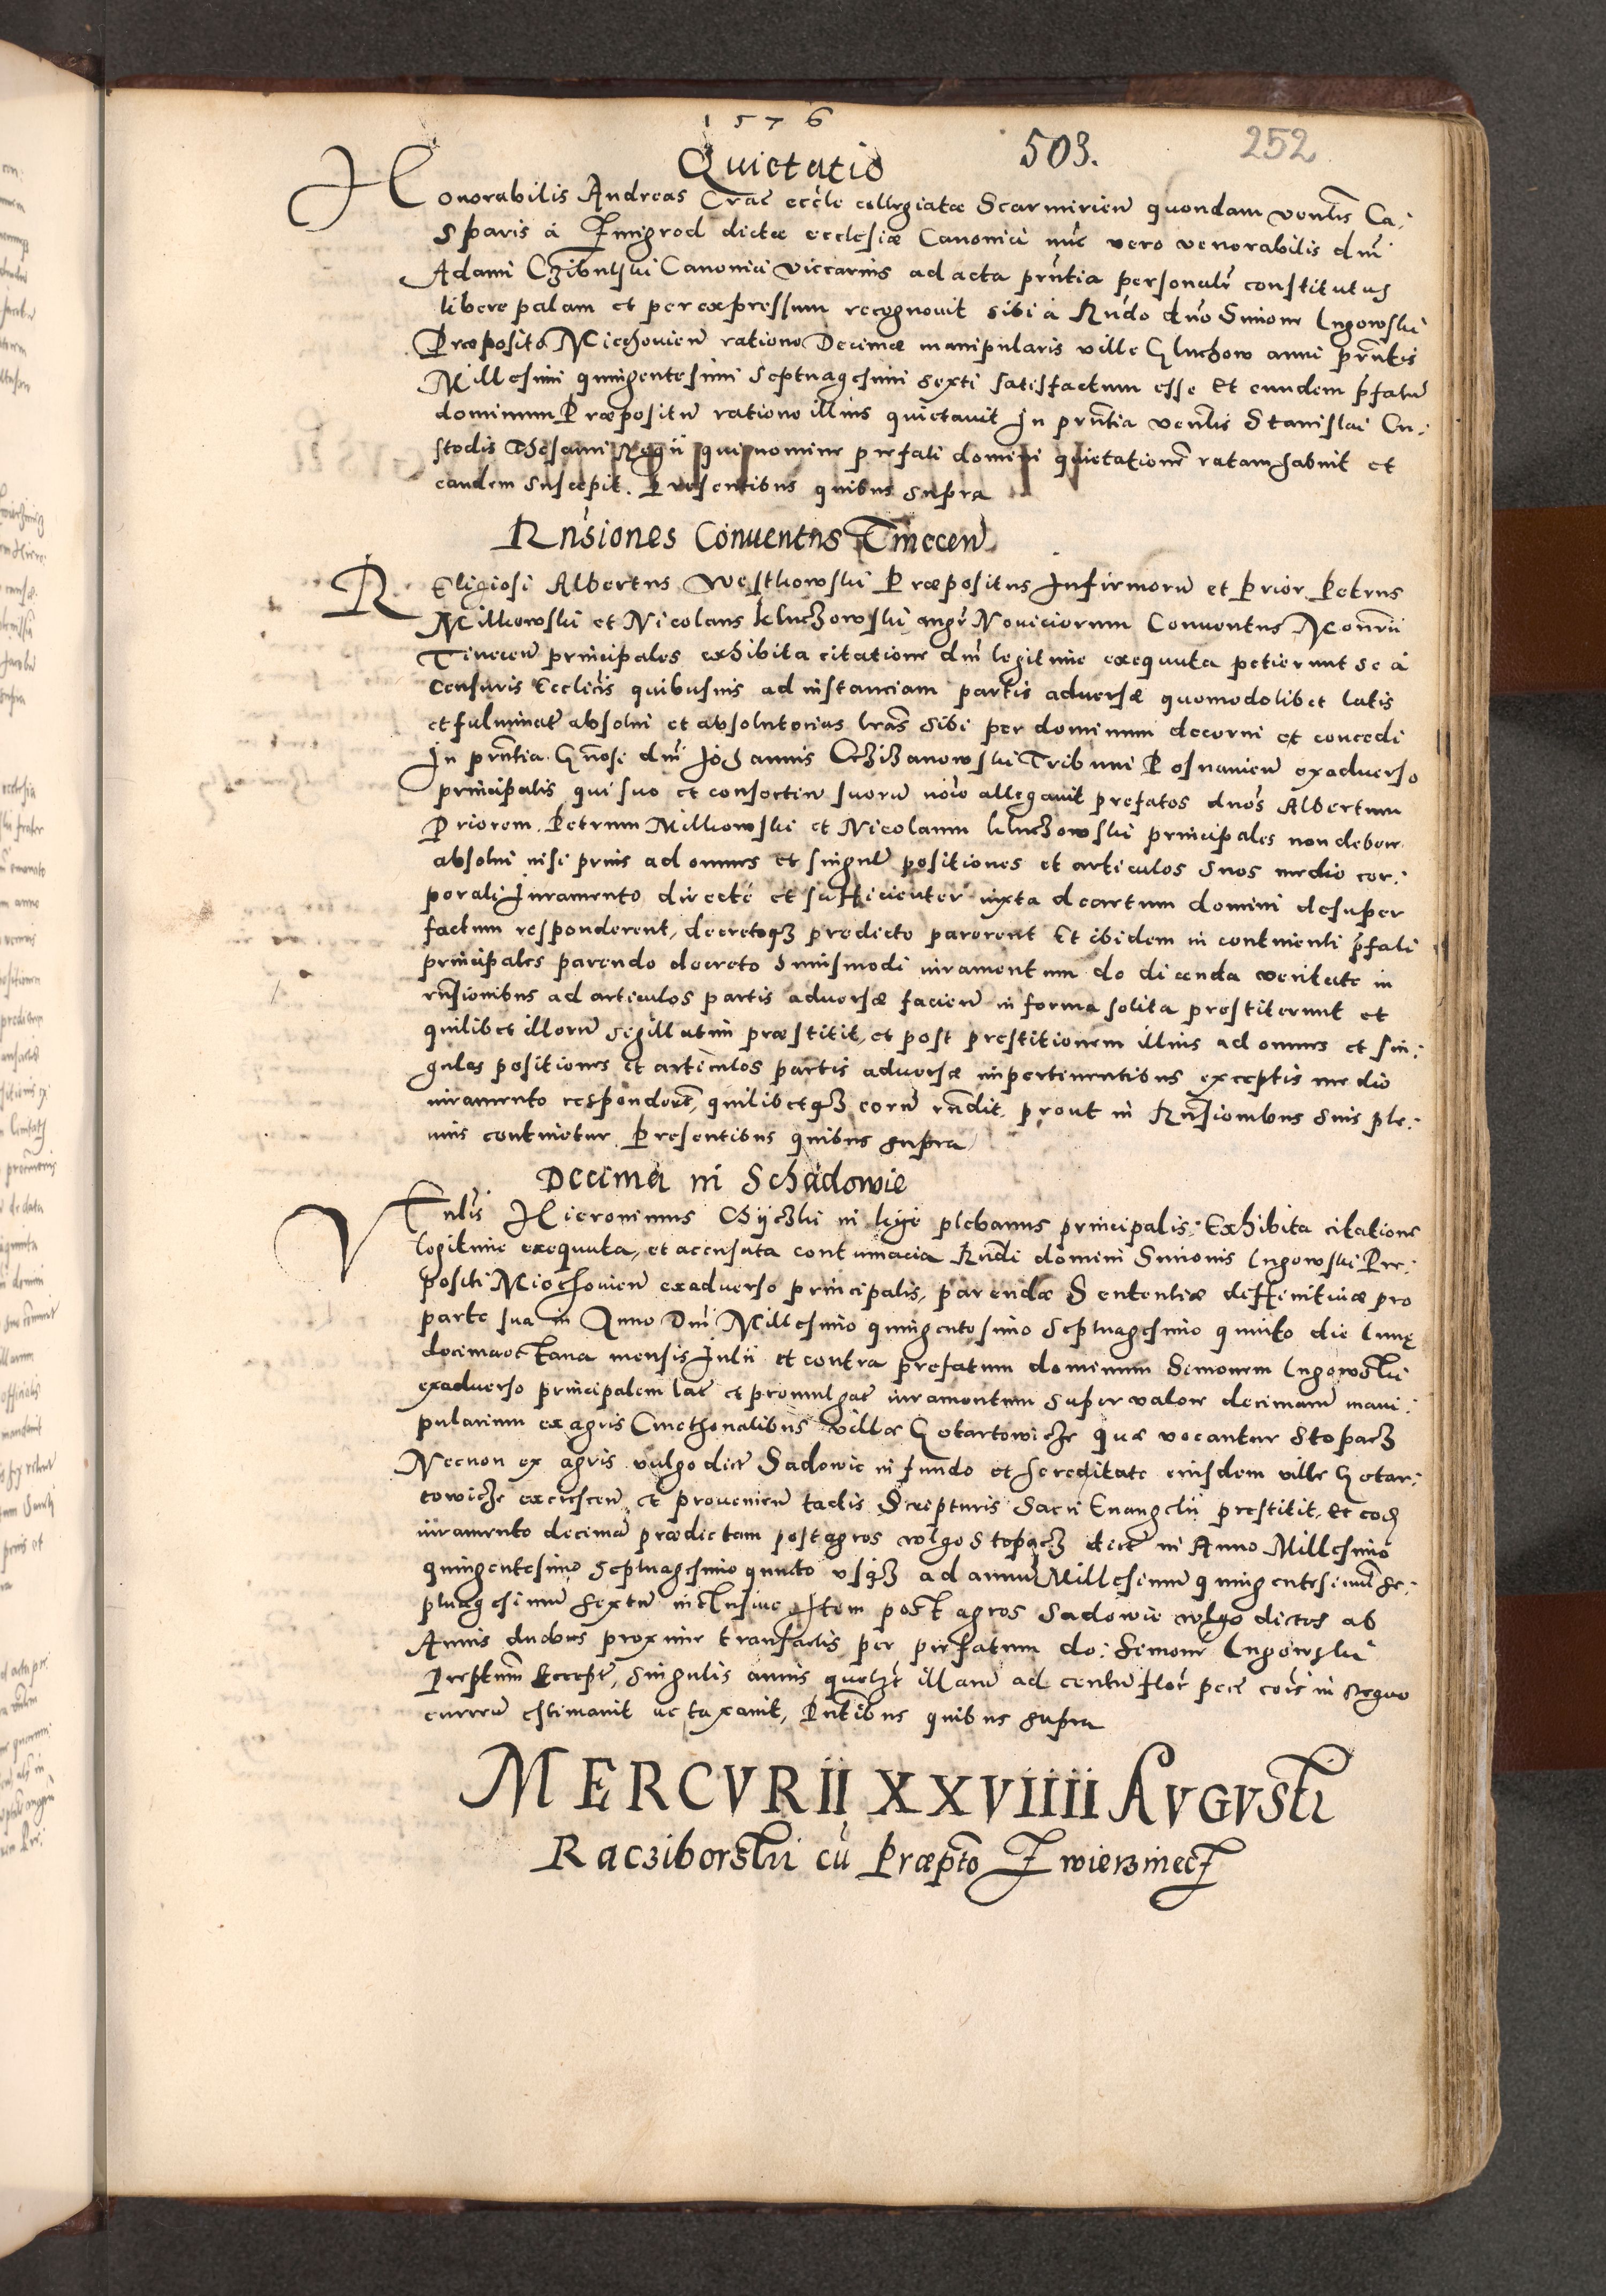 1576
503. 252
Quietatio
Honorabilis Andreas Crac eccle collegiatæ Scarmirien quondam venlis Ca:
sparis à Zmigrod dictæ ecclesiæ Canonici nūc vero venerabilis dni
Adami Canonici viccarius ad acta prntia personalr constitutus
libere palam et per expressum recognovit sibi à Rndo dno Simone Lugowski
Præposito Miechovien ratione Decimæ manipularis ville Gluchow anni prntis
Millesimi quingentesimi septuagesimi sexti satisfactum esse Et eundem pfatū
dominum Præpositū ratione illius quietavit In prntia venlis Stanislai Cu:
stodis Thesauri Regii qui nomine prefati domini quietationē ratam habuit et
eandem suscepit. Presentibus quibus supra
Rnsiones Conventus Tinecen
Religiosi Albertus Westkowski Præpositus Infirmorū et Prior Petrus
Milkowski et Nicolaus kluczowski mgr Noviciorum Conventus Monrii
Tinecen principales exhibita citatione dni legitime exequuta petierunt se à
Censuris Ecclicis quibusuis ad instanciam partis adversæ quomodolibet latis
et fulminat absolvi et absolutorias lras sibi per dominum decerni et concedi
In prntia Gnosi dni Johannis Tribuni Posnanien exadverso
principalis, qui suo et consortiū suorū noie allegavit prefatos dnos Albertum
Priorem. Petrum Milkowski et Nicolaum kluczowski principales non debere
absolvi nisi prius ad omnes et singulas positiones et articulos suos medio cor:
porali Iuramento directe et sufficienter iuxta decretum domini desuper
factum responderent, decretoqz predicto parerent Et ibidem in continenti pfati
principales parendo decreto huiusmodi iuramentum de dicenda veritate in
rnsionibus ad articulos partis adversæ facien in forma solita prestiterunt et
quilibet illorū sigillatim præstitit, et post prestitionem illius ad omnes et sin:
gulas positiones et articulos partis adversæ impertinentibus exceptis medio
iuramento responderūt, quilibetqz eorū rndit prout in Rnsionibus suis ple:
nius continetur Presentibus quibus supra
Decima in Schadowie
Vnlis Hieronimus in plebanus principalis: Exhibita citatione
legitime exequuta, et accusata contumacia Rndi domini Simonis Lugowski Pre:
positi Miechovien exadverso principalis, parendæ Sententiæ diffinitivæ pro
parte sua in Anno Dni Millesimo quingentesimo septuagesimo quinto die lunę
decimaoctava mensis Iulii et contra prefatum dominum Simonem Lugowski
exadverso principalem lat et promulgat iuramentum super valore decimarū mani:
pularium ex agris Cmethonalibus villæ Gotartowicze quæ vocantur Stopacz
Necnon ex agris vulgo dict Sadowie in fundo et hereditate eiusdem ville Gotar:
towicze excrescen et provenien tactis Scripturis Sacri Evangelii prestitit, Et eod
iuramento decimā prædictam post agros vulgo Stopacz dict in Anno Millesimo
quingentesimo septuagesimo quinto usqz ad annū Millesimum quingentesimū se:
ptuagesimum sextū inclusive Item post agros Sadowie vulgo dictos ab
Annis duobus proxime transactis per prefatum do: Simonē Lugowski
Preptum Recept, singulis annis illarū ad centū flor pecc cois in Regno
curren estimavit ac taxavit, Pntibus quibus supra
MERCVRII XXVIIII AVGVSti
Racziborski cū Præpto Zwierzinecz